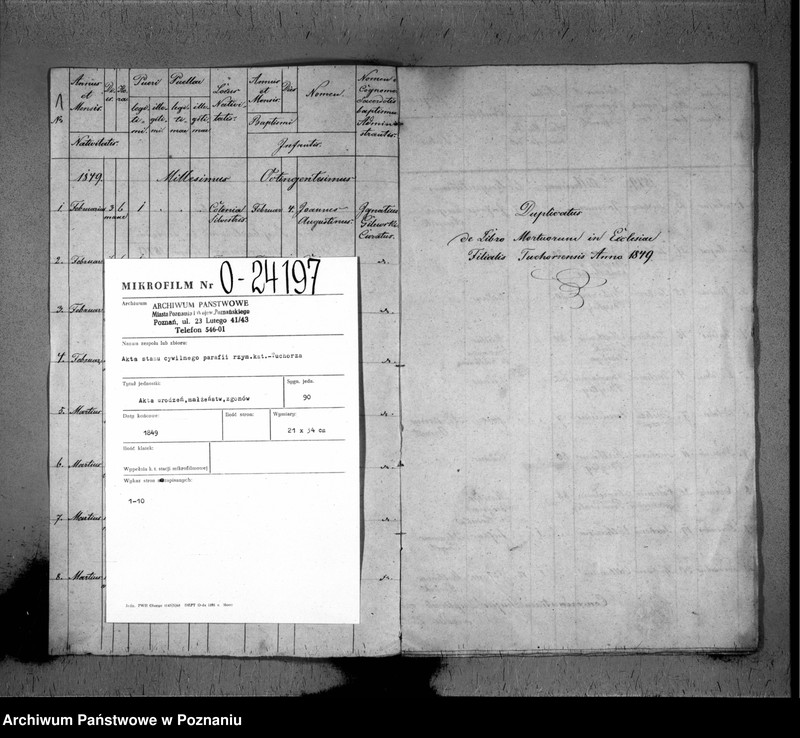 1
Annus et Mensis
Di es.
Ho ra.
Pueri
Puellae
legi- ti- mi.
ille- giti- mi.
legi- ti- mae
ille- giti- mae
Locus Nativi- tatis.
Annus et Mensis.
Dies
Nomen.
Nomen
Cognomen
Sacerdotis
baptismum
Admini-
strantis.
No.
Nativitatis.
Baptismi
Infantis.
1849.
Millesimus
Octingentesimus
1. Februarius 3 6 mane 1
Colonia
Februar 4. Joannes Augustinus.
Ignatius
Curatus.
2. Februar
3. Februar
4. Februar
5. Martius
6. Martius
7. Martius
8. Martius
MIKROFILM Nr O-24197
Archiwum
ARCHIWUM PAŃSTWOWE
Miasta Poznania i Wojew. Poznańskiego
Poznań, ul. 23 Lutego 41/43
Telefon 546-01
Nazwa zespołu lub zbioru:
Akta stanu cywilnego parafii rzym.kat.-Tuchorza
Tytuł jednostki:
Sygn. jedn.
Akta urodzeń,małżeństw,zgonów
90
Daty końcowe:
Ilość stron:
Wymiary:
1849
21 x 34 cm
Ilość klatek:
Wypełnia k. t. stacji mikrofilmowej
Wykaz stron
1-10
Duplicatus
de Libro Mortuorum in Ecclesiae
Filialis Tuchorensis Anno 1849
Archiwum Państwowe w Poznaniu